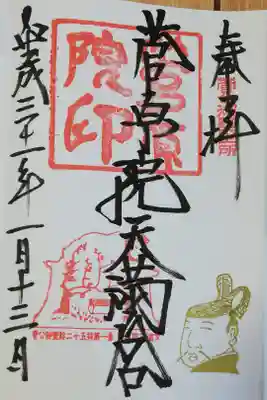 奉拝
菅原院天満宮
平成三十一年一月十三日
菅原
院印